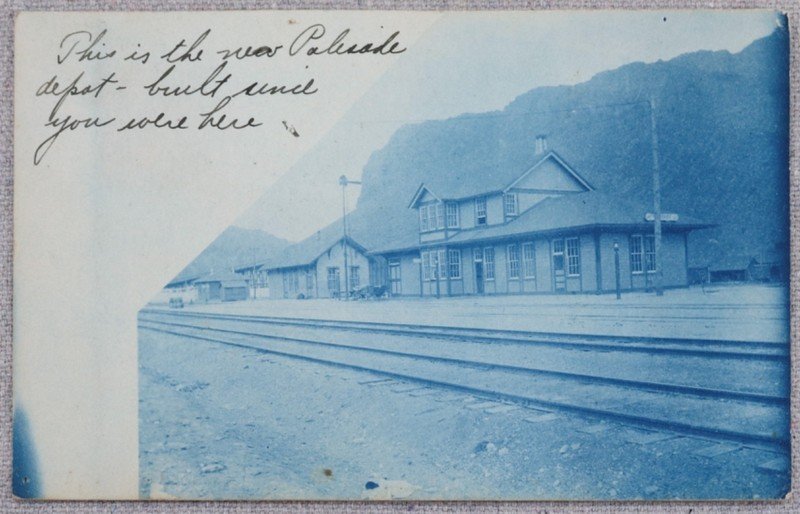 This is the new Palisade
depot - built since
you were here